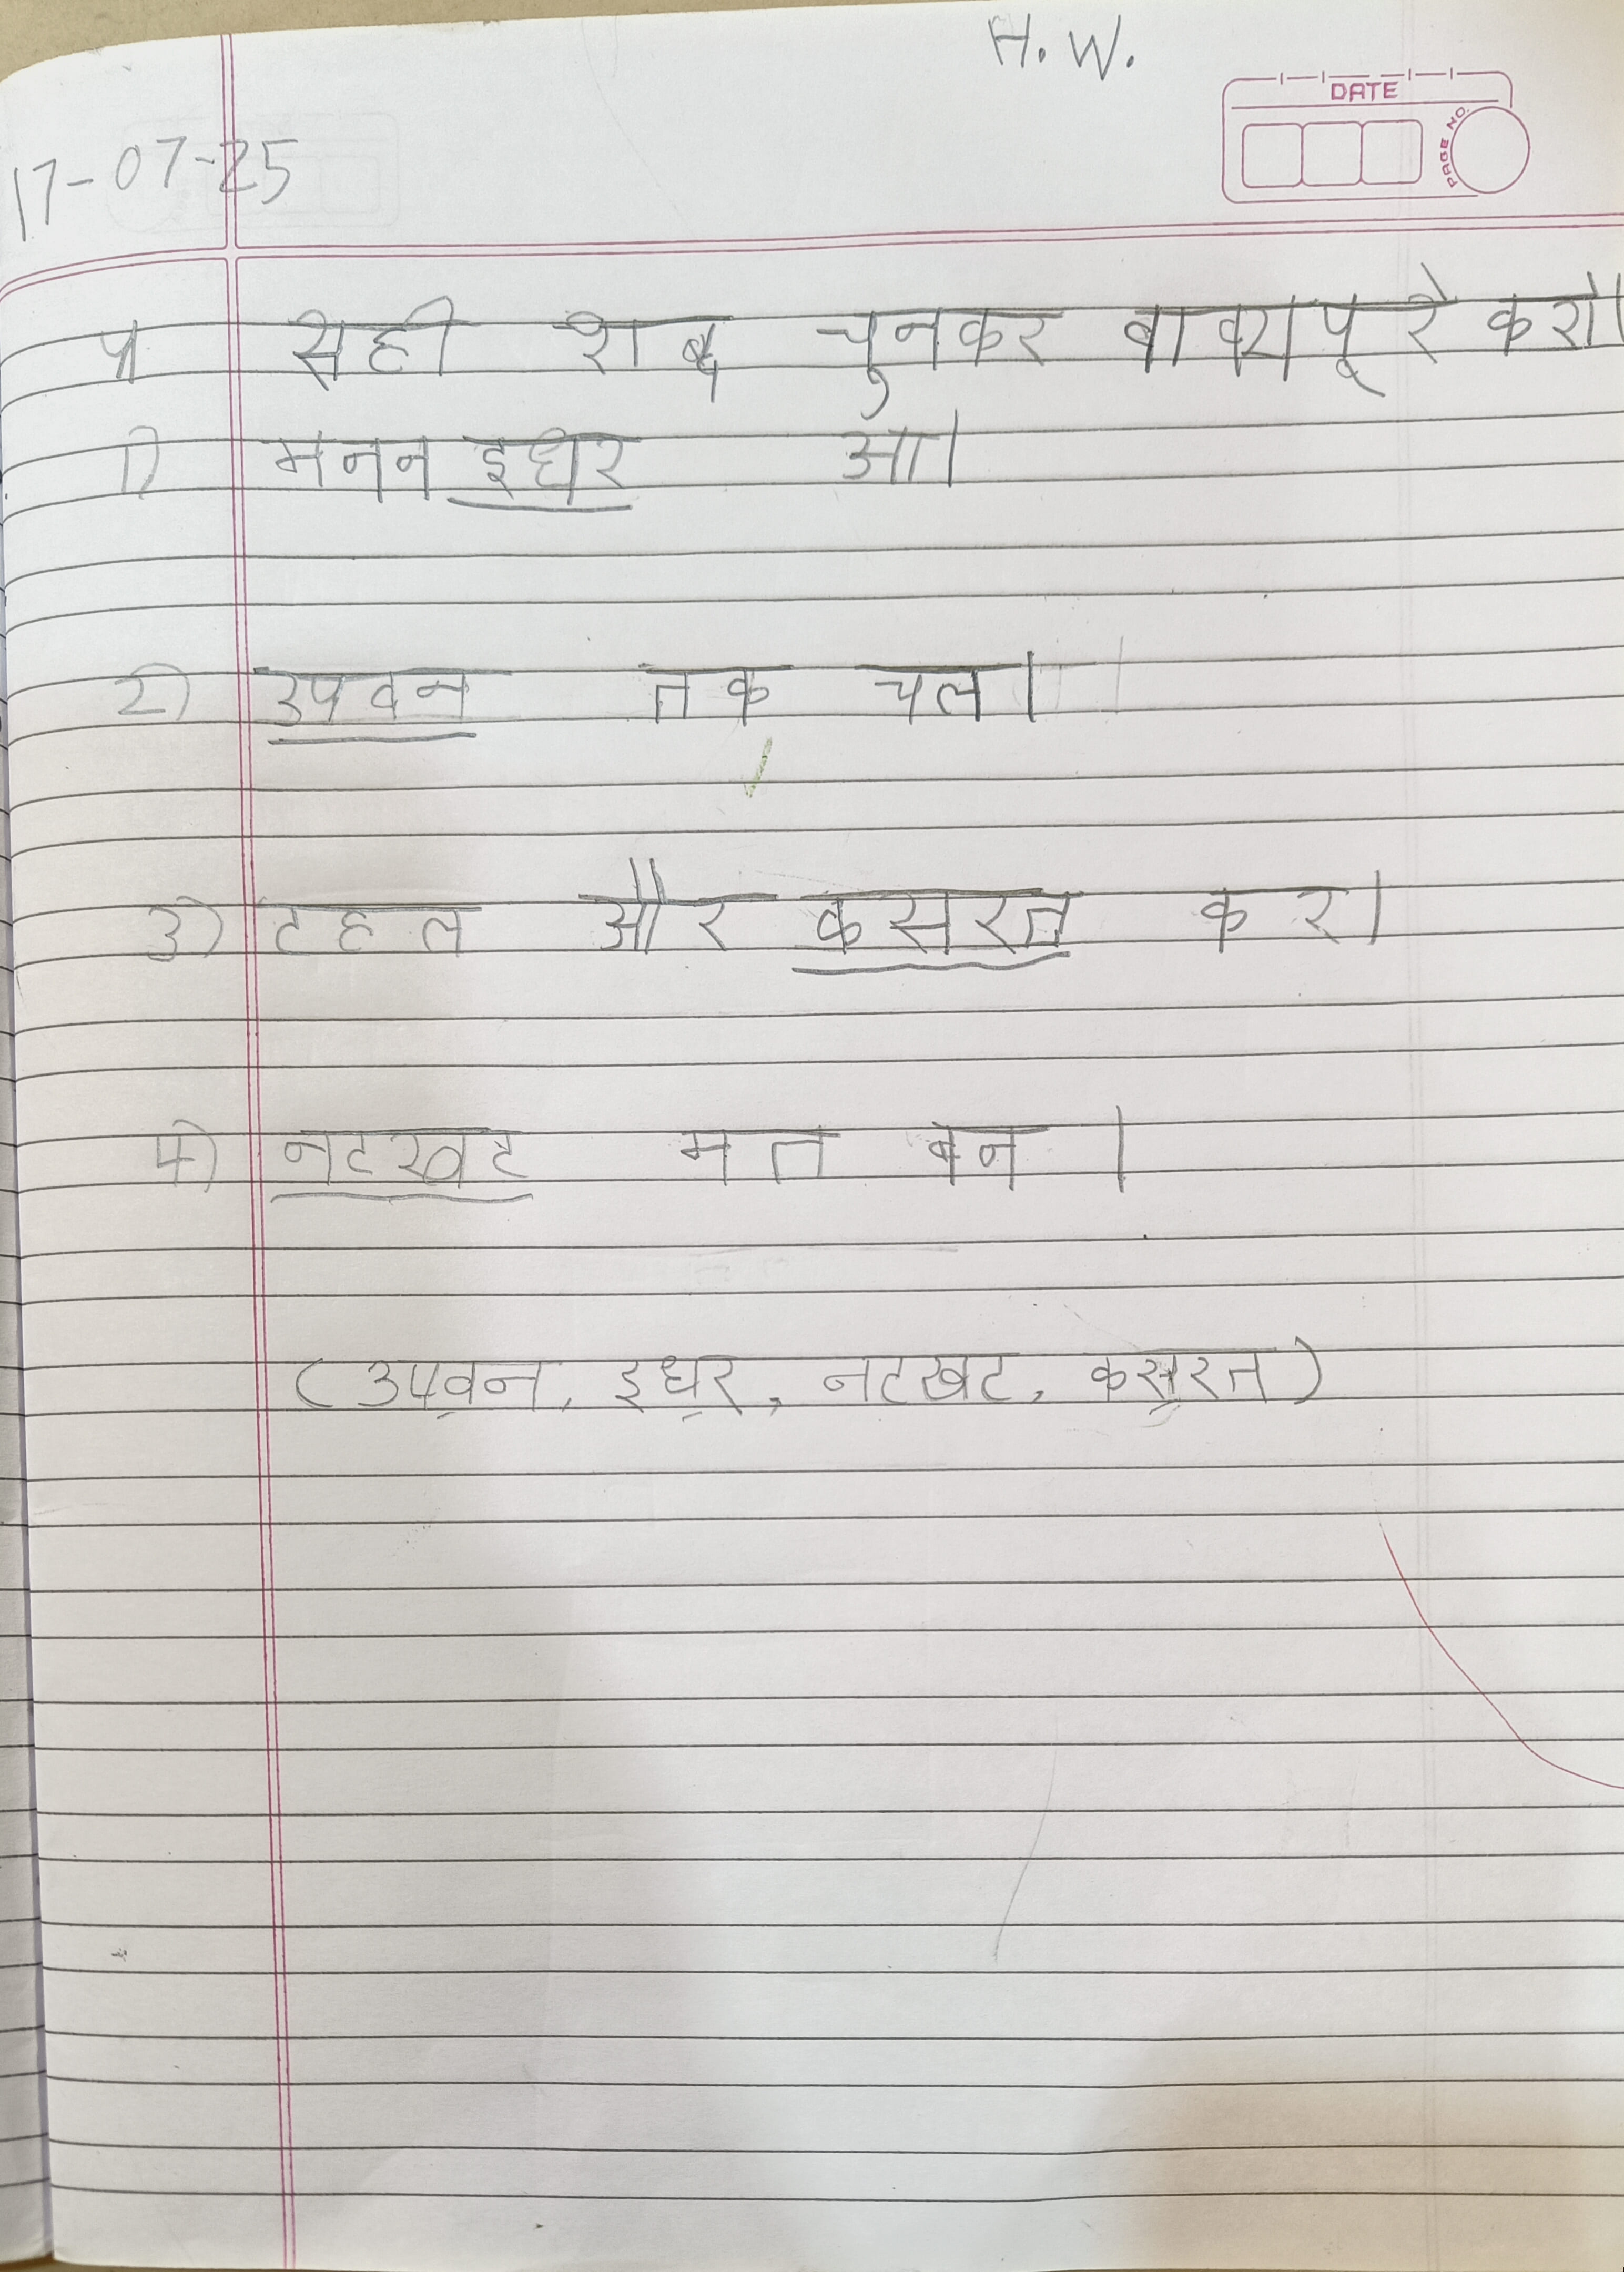 H. W.
DATE
PAGE NO.
17-07-25
प्र सही शब्द चुनकर वाक्य पूरे करो।
1) मनन इधर आ।
2) उपवन तक चल।
3) टहल और कसरत कर।
4) नटखट मत बन ।
(उपवन, इधर, नटखट, कसरत)